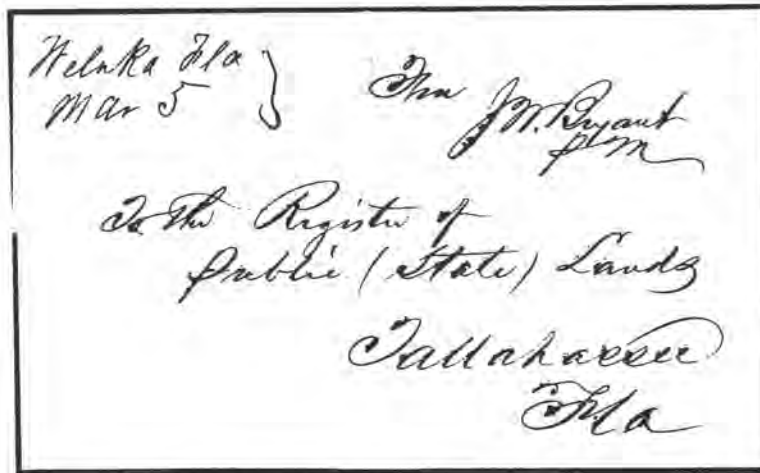 Welaka Fla
Mar 5
Free J.W. Bryant
PM
To the Register of
Public (State) Lands
Tallahassee
Fla